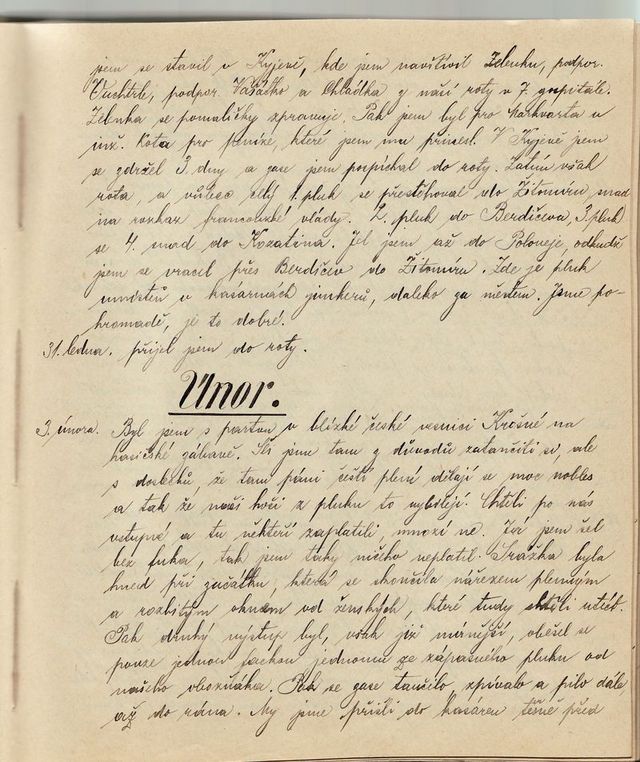 jsem se stavil v Kyjevě, kde jsem navštívil Zelenku, podpor.
Vuchtrle, podpor. Vašátko a Chládka z naší roty v 7. gospitále.
Zelenka se pomaličky zpravuje. Pak jsem byl pro Markvarta u
inž. Kota pro peníze, které jsem mu přinesl. V Kyjevě jsem
se zdržel 3. dny a zase jsem pospíchal do roty. Zatím však
rota, a vůbec celý 1. pluk se přestěhoval do Žitomíru snad
na rozkaz francouzské vlády. 2. pluk do Berdičeva, 3. pluk
se 4. snad do Kozatína. Jel jsem až do Poloneje, odkudž
jsem se vracel přes Berdičev do Žitomíru. Zde je pluk
umístěn v kasárnách junkerů, daleko za městem. Jsme po-
hromadě, je to dobré.
31. ledna. přijel jsem do roty.
Únor.
3. února. Byl jsem s partou v blízké české vesnici Krošně na
hasičské zábavě. Šli jsme tam z důvodů zatančiti si, ale
s doslechů, že tam páni čeští pleni dělají se moc nobles
a tak že naši hoši z pluku to vybíjejí. Chtěli po nás
vstupné a tu někteří zaplatili, mnozí ne. Já jsem šel
bez fuka, tak jsem taky ničeho neplatil. Srážka byla
hned při začátku, která se skončila nářezem plenným
a rozbitým oknem od ženských, které tudy chtěli utéct.
Pak druhý výstup byl, však již mírnější, obešel se
pouze jednou fackou jednomu ze zápasného pluku od
našeho obozňáka. Pak se zase tančilo zpívalo a pilo dále
až do rána. My jsme přišli do kasáren těsně před